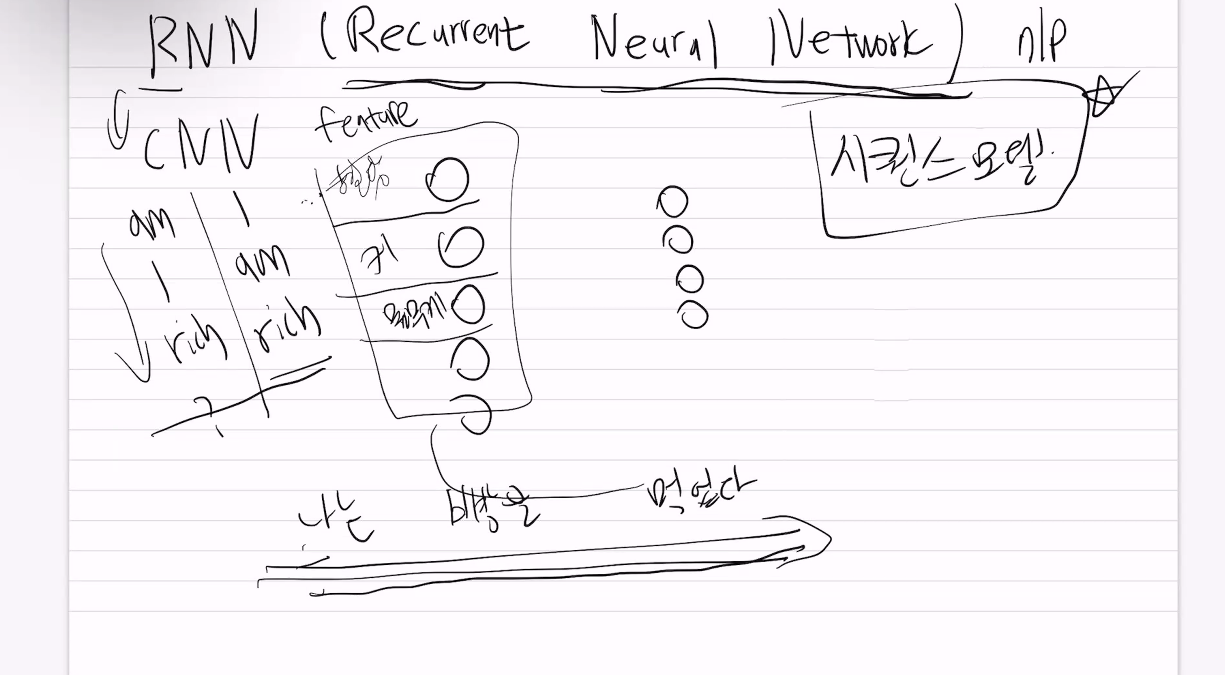 RNN (Recurrent Neural Network) nlp
CNN
feature
시퀀스 모델
am
I
rich
?
I
am
rich
키
몸무게
나는 바나나을 먹었다